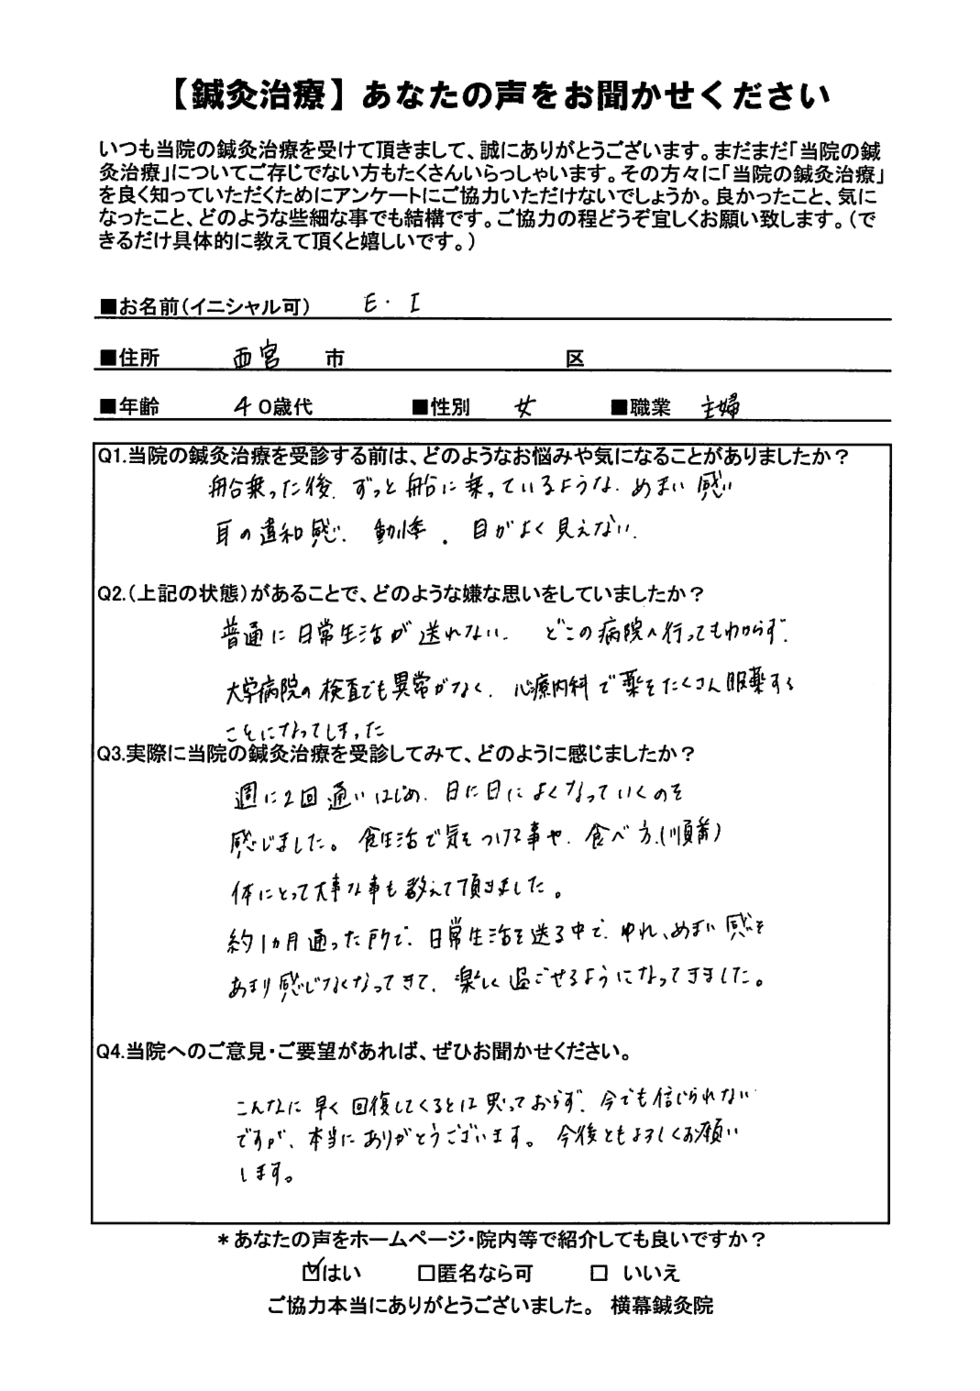 【鍼灸治療】あなたの声をお聞かせください
いつも当院の鍼灸治療を受けて頂きまして、誠にありがとうございます。まだまだ「当院の鍼
灸治療」についてご存じでない方もたくさんいらっしゃいます。その方々に「当院の鍼灸治療」
を良く知っていただくためにアンケートにご協力いただけないでしょうか。良かったこと、気に
なったこと、どのような些細な事でも結構です。ご協力の程どうぞ宜しくお願い致します。（で
きるだけ具体的に教えて頂くと嬉しいです。）
■お名前（イニシャル可） E・I
■住所 西宮 市 区
■年齢 40歳代 ■性別 女 ■職業 主婦
Q1.当院の鍼灸治療を受診する前は、どのようなお悩みや気になることがありましたか？
船乗った後、ずっと船に乗っているような、めまい感い
耳の違和感、動悸、目がよく見えない、
Q2.（上記の状態）があることで、どのような嫌な思いをしていましたか？
普通に日常生活が送れない、どこの病院へ行ってもわからず、
大学病院の検査でも異常がなく、心療内科で薬をたくさん服薬する
ことになってしまった
Q3.実際に当院の鍼灸治療を受診してみて、どのように感じましたか？
週に2回通いはじめ、日に日によくなっていくのを
感じました。食生活で気をつける事や、食べ方、（順番）
体にとって大事な事も教えて頂きました。
約1ヵ月通った所で、日常生活を送る中で、ゆれ、めまい感を
あまり感じなくなってきて、楽しく過ごせるようになってきました。
Q4.当院へのご意見・ご要望があれば、ぜひお聞かせください。
こんなに早く回復してくるとは思っておらず、今でも信じられない
ですが、本当にありがとうございます。今後ともよろしくお願い
します。
＊あなたの声をホームページ・院内等で紹介しても良いですか？
☑はい □匿名なら可 □ いいえ
ご協力本当にありがとうございました。 横幕鍼灸院